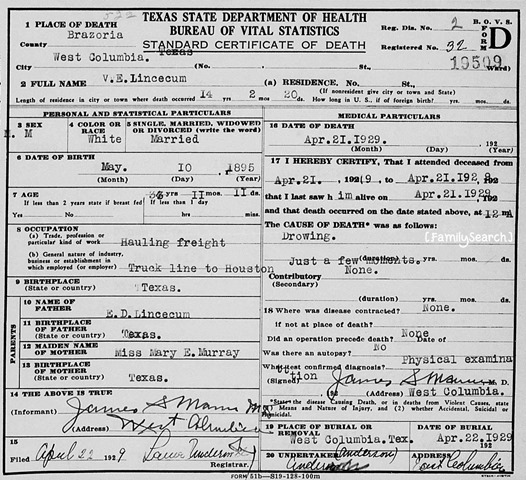 TEXAS STATE DEPARTMENT OF HEALTH
BUREAU OF VITAL STATISTICS
STANDARD CERTIFICATE OF DEATH
B. O. V. S.
FORM D
Reg. Dis. No. 2
Registered No. 32
19509
1 PLACE OF DEATH
County Brazoria
Texas
City West Columbia. (No. St., Ward)
2 FULL NAME V.E.Lincecum (a) RESIDENCE. No. St.,
(If nonresident give city or town and State)
Length of residence in city or town where death occurred 14 yrs 2 mos 20 ds. How long in U. S., if of foreign birth? yrs. mos. ds.
PERSONAL AND STATISTICAL PARTICULARS
3 SEX
M
4 COLOR OR RACE
White
5 SINGLE, MARRIED, WIDOWED OR DIVORCED (write the word)
Married
6 DATE OF BIRTH
May. 10 1895
(Month) (Day) (Year)
7 AGE
yrs 11 mos 11 ds.
If less than 2 years state if breast fed
If less than 1 day
Yes No hrs. Min.
8 OCCUPATION
(a) Trade, profession or particular kind of work Hauling freight
(b) General nature of industry, business or establishment in which employed (or employer) Truck line to Houston
9 BIRTHPLACE
(State or country) Texas.
PARENTS
10 NAME OF FATHER E.D.Lincecum
11 BIRTHPLACE OF FATHER
(State or country) Texas.
12 MAIDEN NAME OF MOTHER Miss Mary E.Murray
13 BIRTHPLACE OF MOTHER
(State or country) Texas.
14 THE ABOVE IS TRUE
(Informant) James S Mann MD
(Address) West Columbia
15
Filed April 22 1929
Registrar.
MEDICAL PARTICULARS
16 DATE OF DEATH
Apr.21.1929. 192
(Month) (Day) (Year)
17 I HEREBY CERTIFY, That I attended deceased from
Apr.21. , 192 9, to Apr.21.192
that I last saw h im alive on Apr.21.1929
and that death occurred on the date stated above, at 12 M
The CAUSE OF DEATH* was as follows:
Drowing.
[FamilySearch]
Just a few moments.
(duration) yrs. mos. ds.
Contributory None.
(Secondary)
(duration) yrs. mos. ds.
18 Where was disease contracted? None.
if not at place of death?
Did an operation precede death? None Date of
Was there an autopsy? No
What test confirmed diagnosis? Physical examina
tion
(Signed) James S Mann M. D.
192 (Address) West Columbia.
*State the disease Causing Death, or in deaths from Violent Causes, state (1) Means and Nature of Injury, and (2) whether Accidental, Suicidal or Homicidal.
19 PLACE OF BURIAL OR REMOVAL
West Columbia.Tex.
DATE OF BURIAL
Apr.22.1929
20 UNDERTAKER (Anderson)
ADDRESS
West Columbia
FORM 51b—S19-128-100m